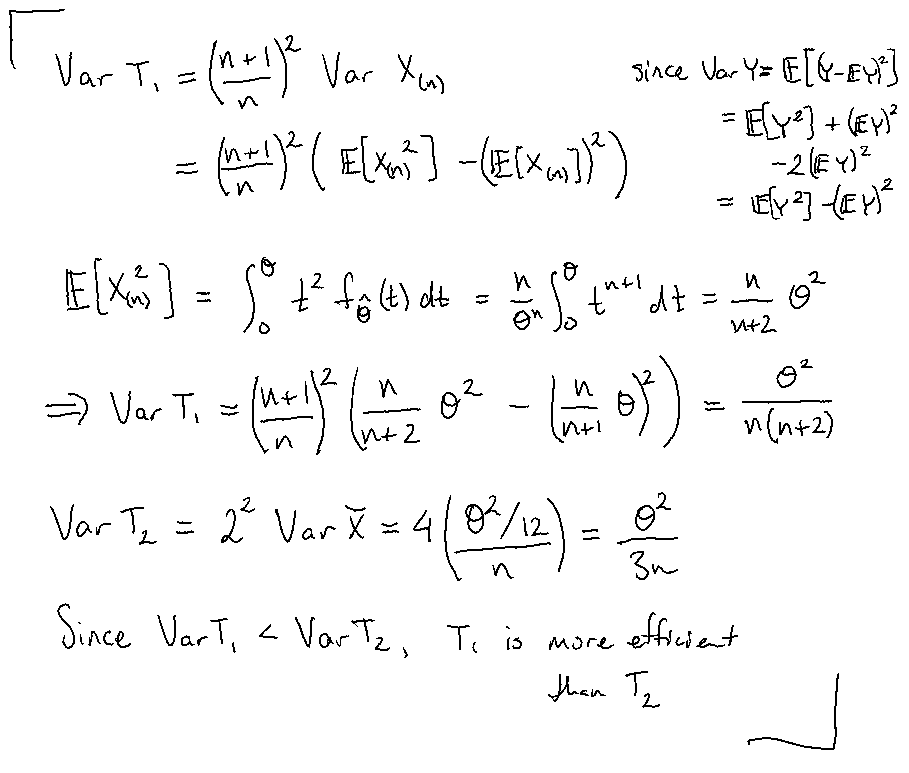 Var T₁ = ((n+1)/n)² Var X₍ₙ₎
= ((n+1)/n)² ( 𝔼[X₍ₙ₎²] − (𝔼[X₍ₙ₎])² )
since Var Y = 𝔼[(Y−𝔼Y)²]
= 𝔼[Y²] + (𝔼Y)²
− 2(𝔼Y)²
= 𝔼[Y²] − (𝔼Y)²
𝔼[X₍ₙ₎²] = ∫₀^θ t² f_θ̂(t) dt = n/θⁿ ∫₀^θ tⁿ⁺¹ dt = n/(n+2) θ²
⇒ Var T₁ = ((n+1)/n)² ( n/(n+2) θ² − (n/(n+1) θ)² ) = θ²/(n(n+2))
Var T₂ = 2² Var X̄ = 4( (θ²/12)/n ) = θ²/(3n)
Since Var T₁ < Var T₂, T₁ is more efficient
than T₂